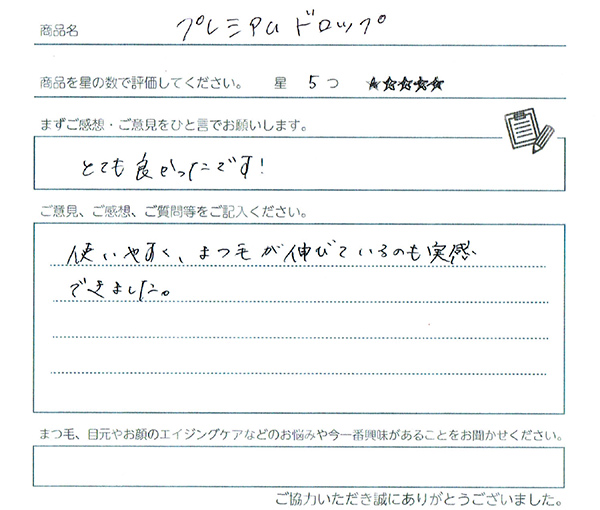 商品名 プレミアムドロップ
商品を星の数で評価してください。 星 5つ ★☆☆☆☆
まずご感想・ご意見をひと言でお願いします。
とても良かったです!
ご意見、ご感想、ご質問等をご記入ください。
使いやすく、まつ毛が伸びているのも実感
できました。
まつ毛、目元やお顔のエイジングケアなどのお悩みや今一番興味があることをお聞かせください。
ご協力いただき誠にありがとうございました。